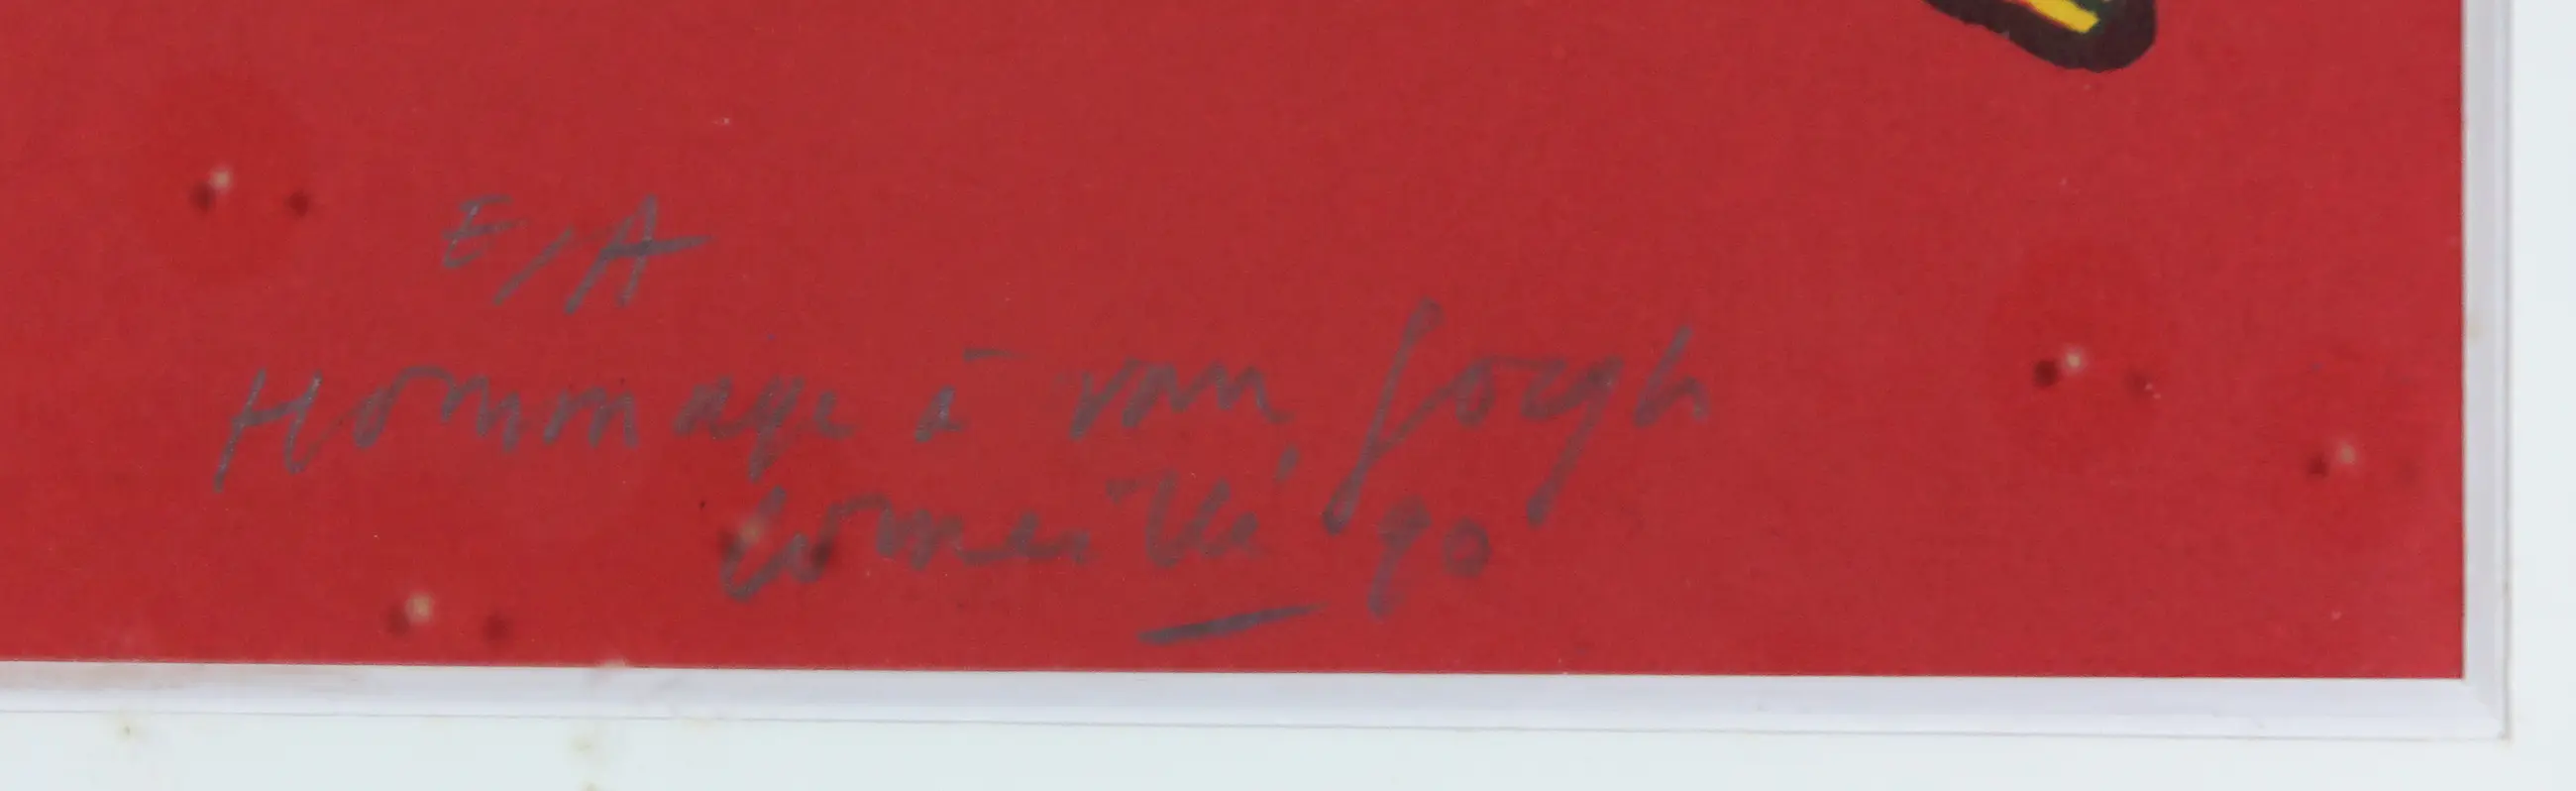 E/A
Hommage à van Gogh
Corneille '90